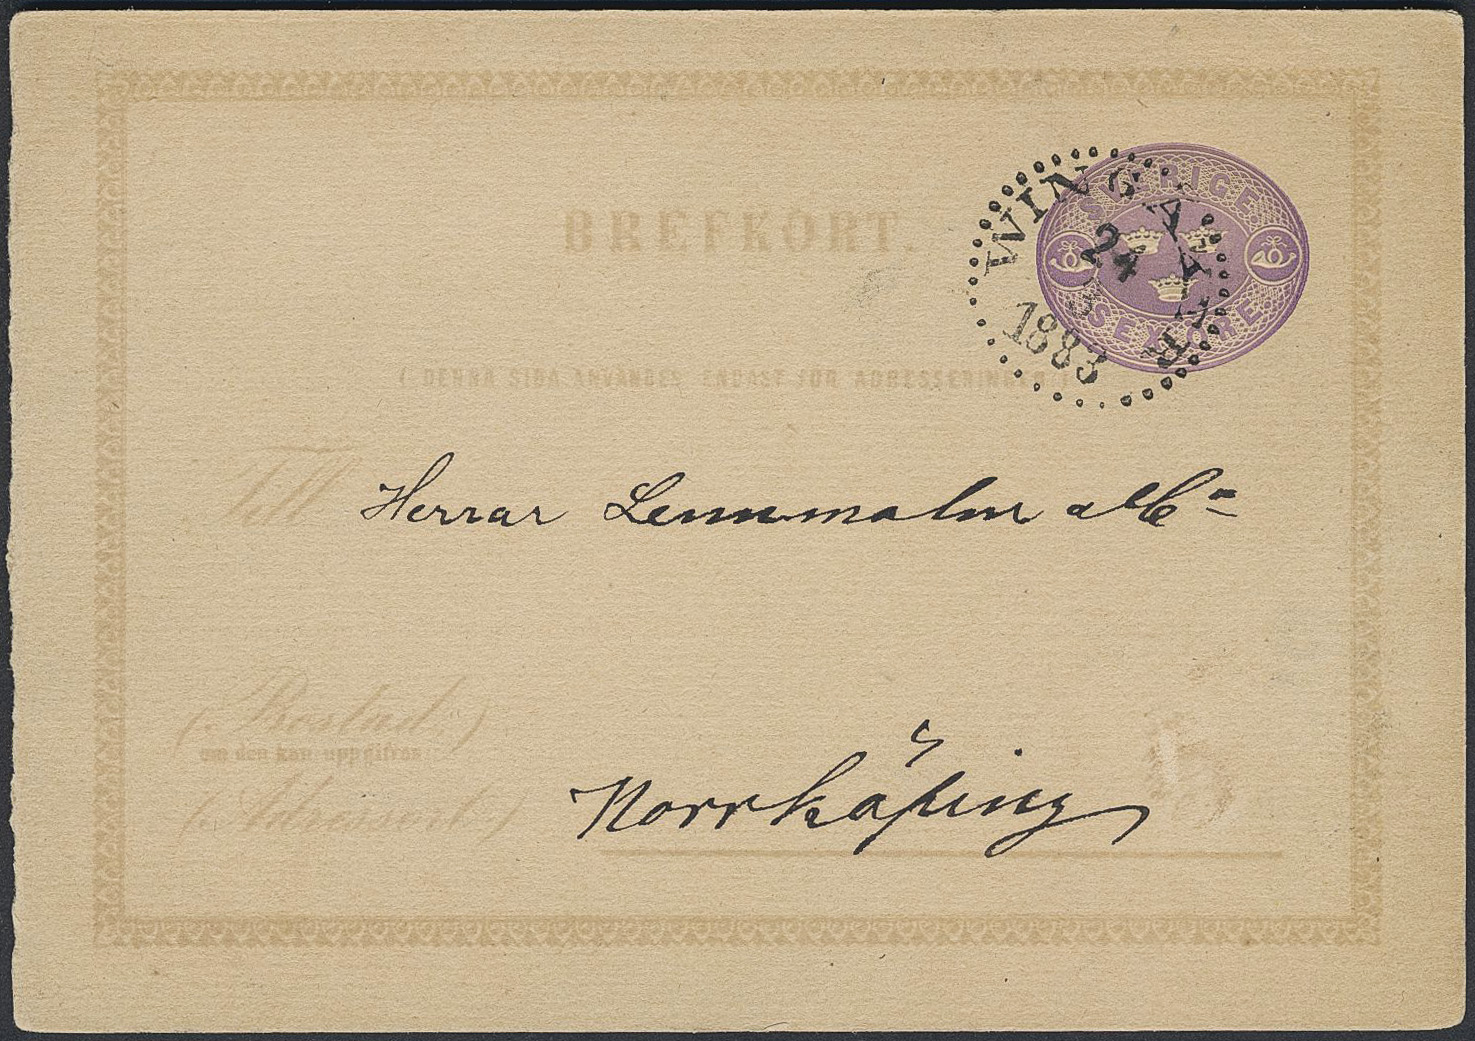 SVERIGE
SEX ÖRE
WINGÅKER
24
3
1883
BREFKORT.
( DENNA SIDA ANVÄNDES ENDAST FÖR ADRESSERINGEN )
Till Herrar Lennmalm & Co
( Bostad: )
om den kan uppgifvas
Norrköping